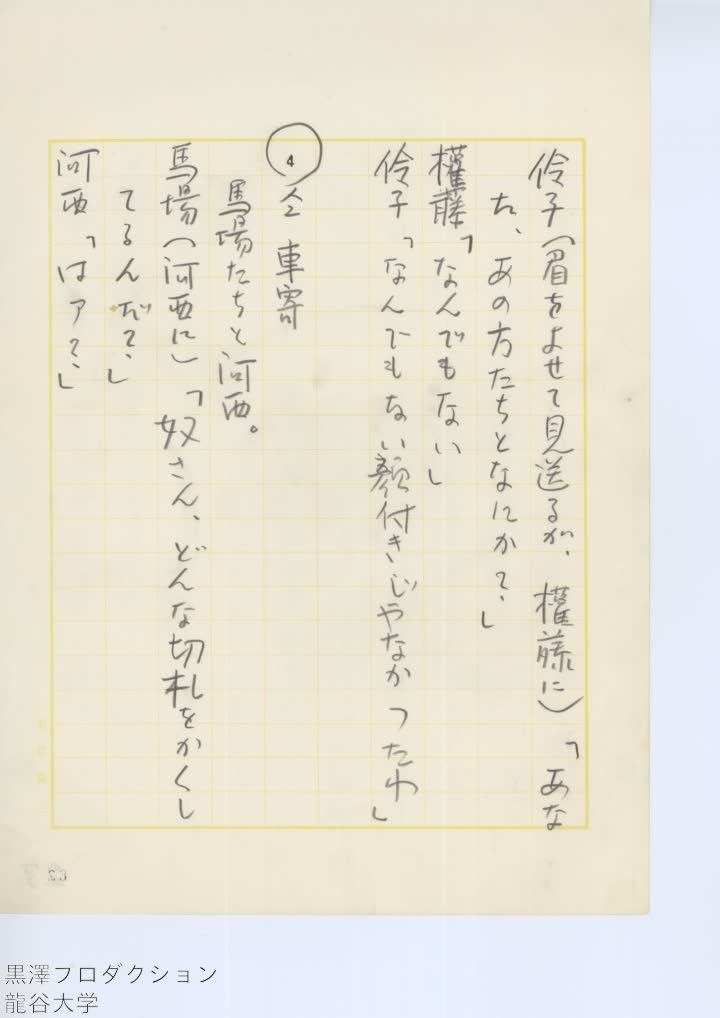 伶子（眉をよせて見送るが、權藤に）「あな
た、あの方たちとなにか？」
權藤「なんでもない」
伶子「なんでもない顔付きじゃなかったわ」
4 仝 車寄
馬場たちと河西。
馬場（河西に）「奴さん、どんな切札をかくし
てるんだ？」
河西「はア？」
黒澤プロダクション
龍谷大学